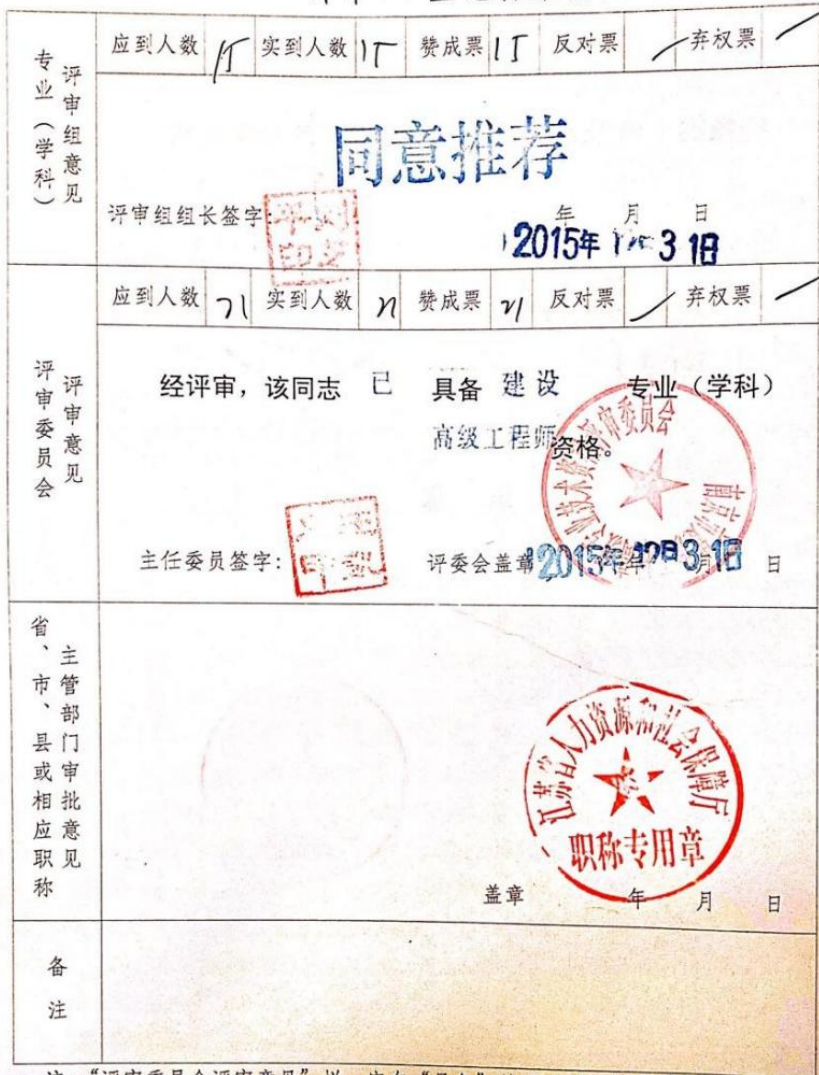 专业（学科）
评审组意见
应到人数 15 实到人数 15 赞成票 15 反对票 / 弃权票 /
同意推荐
评审组组长签字:
年 月 日
2015年 3 1日
评审委员会
评审意见
应到人数 21 实到人数 21 赞成票 21 反对票 / 弃权票 /
经评审，该同志 已 具备 建设 专业（学科）
高级工程师 资格。
主任委员签字:
评委会盖章
2015年 3 1日
月 日
省、市、县或相应职称
主管部门审批意见
江苏省人力资源和社会保障厅
职称专用章
盖章 年 月 日
备注